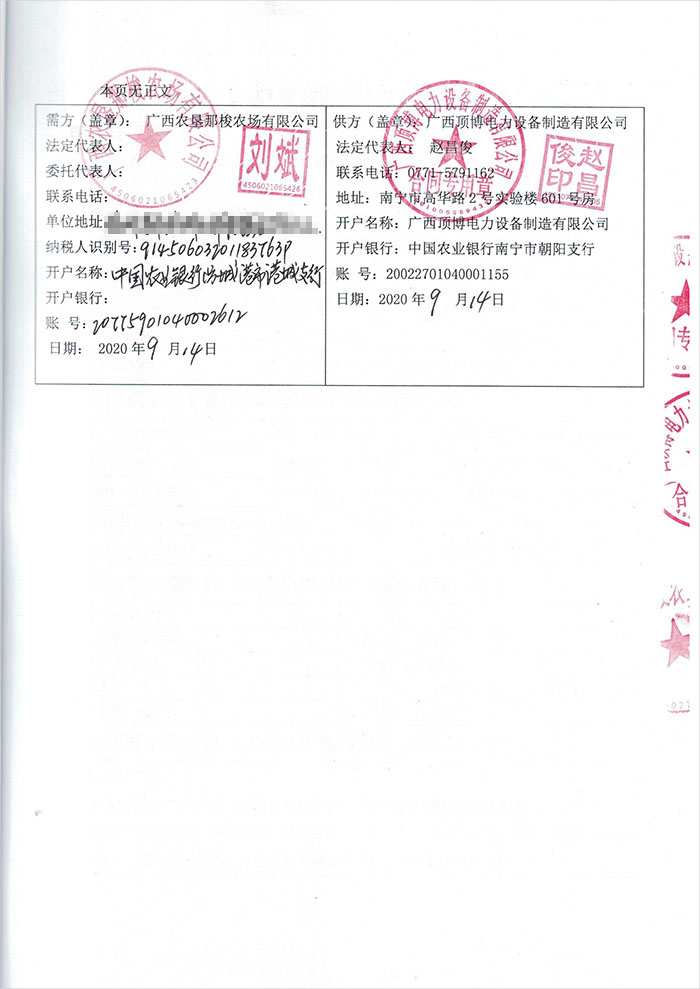 本页无正文
需方（盖章）： 广西农垦那梭农场有限公司
法定代表人：
委托代表人：
联系电话：
单位地址：
纳税人识别号：
开户名称：中国农业银行防城港市港城支行
开户银行：
账 号：20775901040002612
日期： 2020 年 9 月 14 日
供方（盖章）：广西顶博电力设备制造有限公司
法定代表人： 赵昌俊
联系电话：0771-5791162
地址：南宁市高华路 2 号实验楼 601 号房
开户名称：广西顶博电力设备制造有限公司
开户银行：中国农业银行南宁市朝阳支行
账 号：20022701040001155
日期：2020 年 9 月 14 日
广西农垦那梭农场有限公司
4506021065423
刘斌
4506021065426
广西顶博电力设备制造有限公司
合同专用章
赵昌俊印